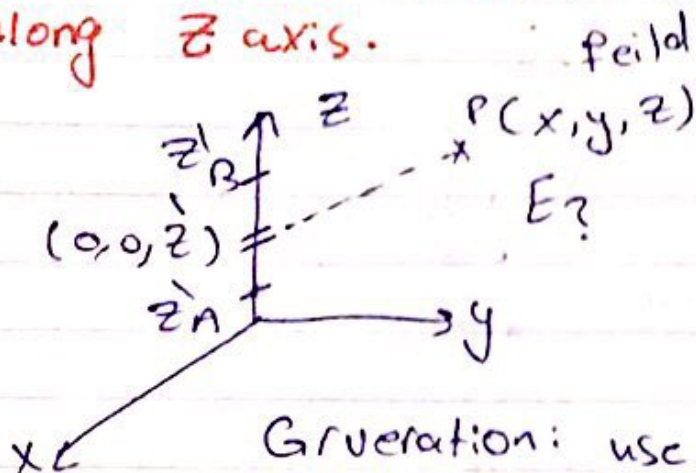 long Z axis.
feild
Z
P(x,y,z)
z'B
E?
(0,0,z')
z'A
y
x
Grueration: use